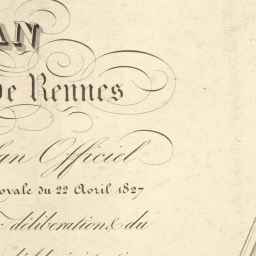 AN
de Rennes
lan Officiel
oyale du 22 Avril 1827
déliberation & du